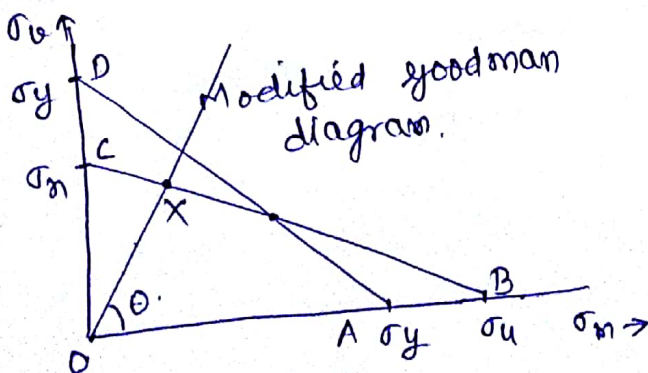 σv ↑
D
σy
Modified goodman
diagram.
C
σn
X
θ.
O
A σy
B
σu
σm →